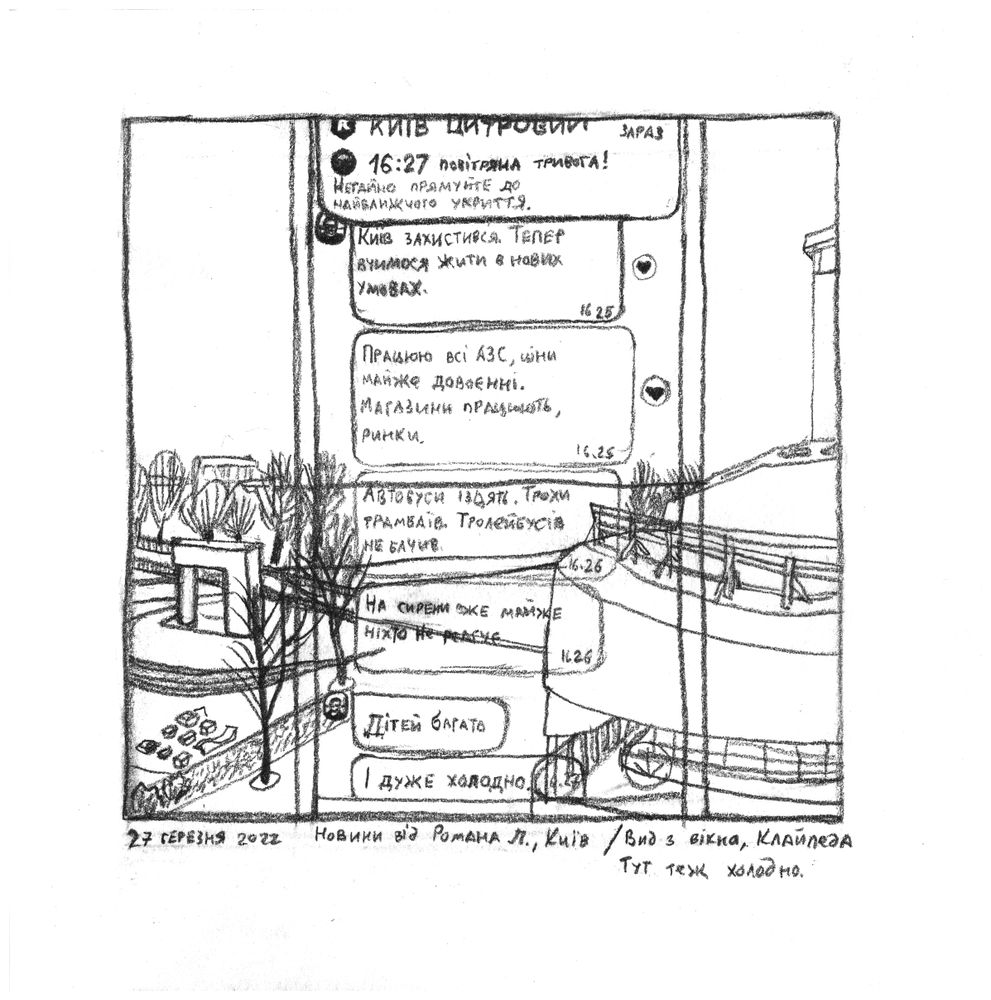 КИЇВ ЦИФРОВИЙ ЗАРАЗ
16:27 ПОВІТРЯНА ТРИВОГА!
НЕГАЙНО ПРЯМУЙТЕ ДО
НАЙБЛИЖЧОГО УКРИТТЯ.
КИЇВ ЗАХИСТИВСЯ. ТЕПЕР
ВЧИМОСЯ ЖИТИ В НОВИХ
УМОВАХ.
16.25
ПРАЦЮЮ ВСІ АЗС, ЦІНИ
МАЙЖЕ ДОВОЄННІ.
МАГАЗИНИ ПРАЦЮЮТЬ,
РИНКИ.
16.25
АВТОБУСИ ЇЗДЯТЬ. ТРОХИ
ТРАМВАЇВ. ТРОЛЕЙБУСІВ
НЕ БАЧИВ.
16.26
НА СИРЕНИ ВЖЕ МАЙЖЕ
НІХТО НЕ РЕАГУЄ
16.26
ДІТЕЙ БАГАТО
І ДУЖЕ ХОЛОДНО.
16.27
27 БЕРЕЗНЯ 2022 НОВИНИ ВІД РОМАНА Л., КИЇВ / ВИД З ВІКНА, КЛАЙПЕДА
ТУТ ТЕЖ ХОЛОДНО.